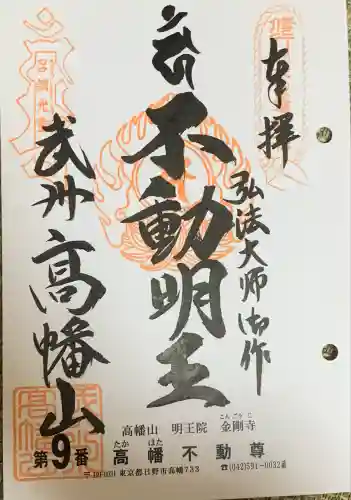 奉拝
弘法大師御作
不動明王
武州
高幡山
第9番
高幡山 明王院 金剛寺
こんごうじ
たか はた
高幡不動尊
東京都日野市高幡733
☎(042)591-0032